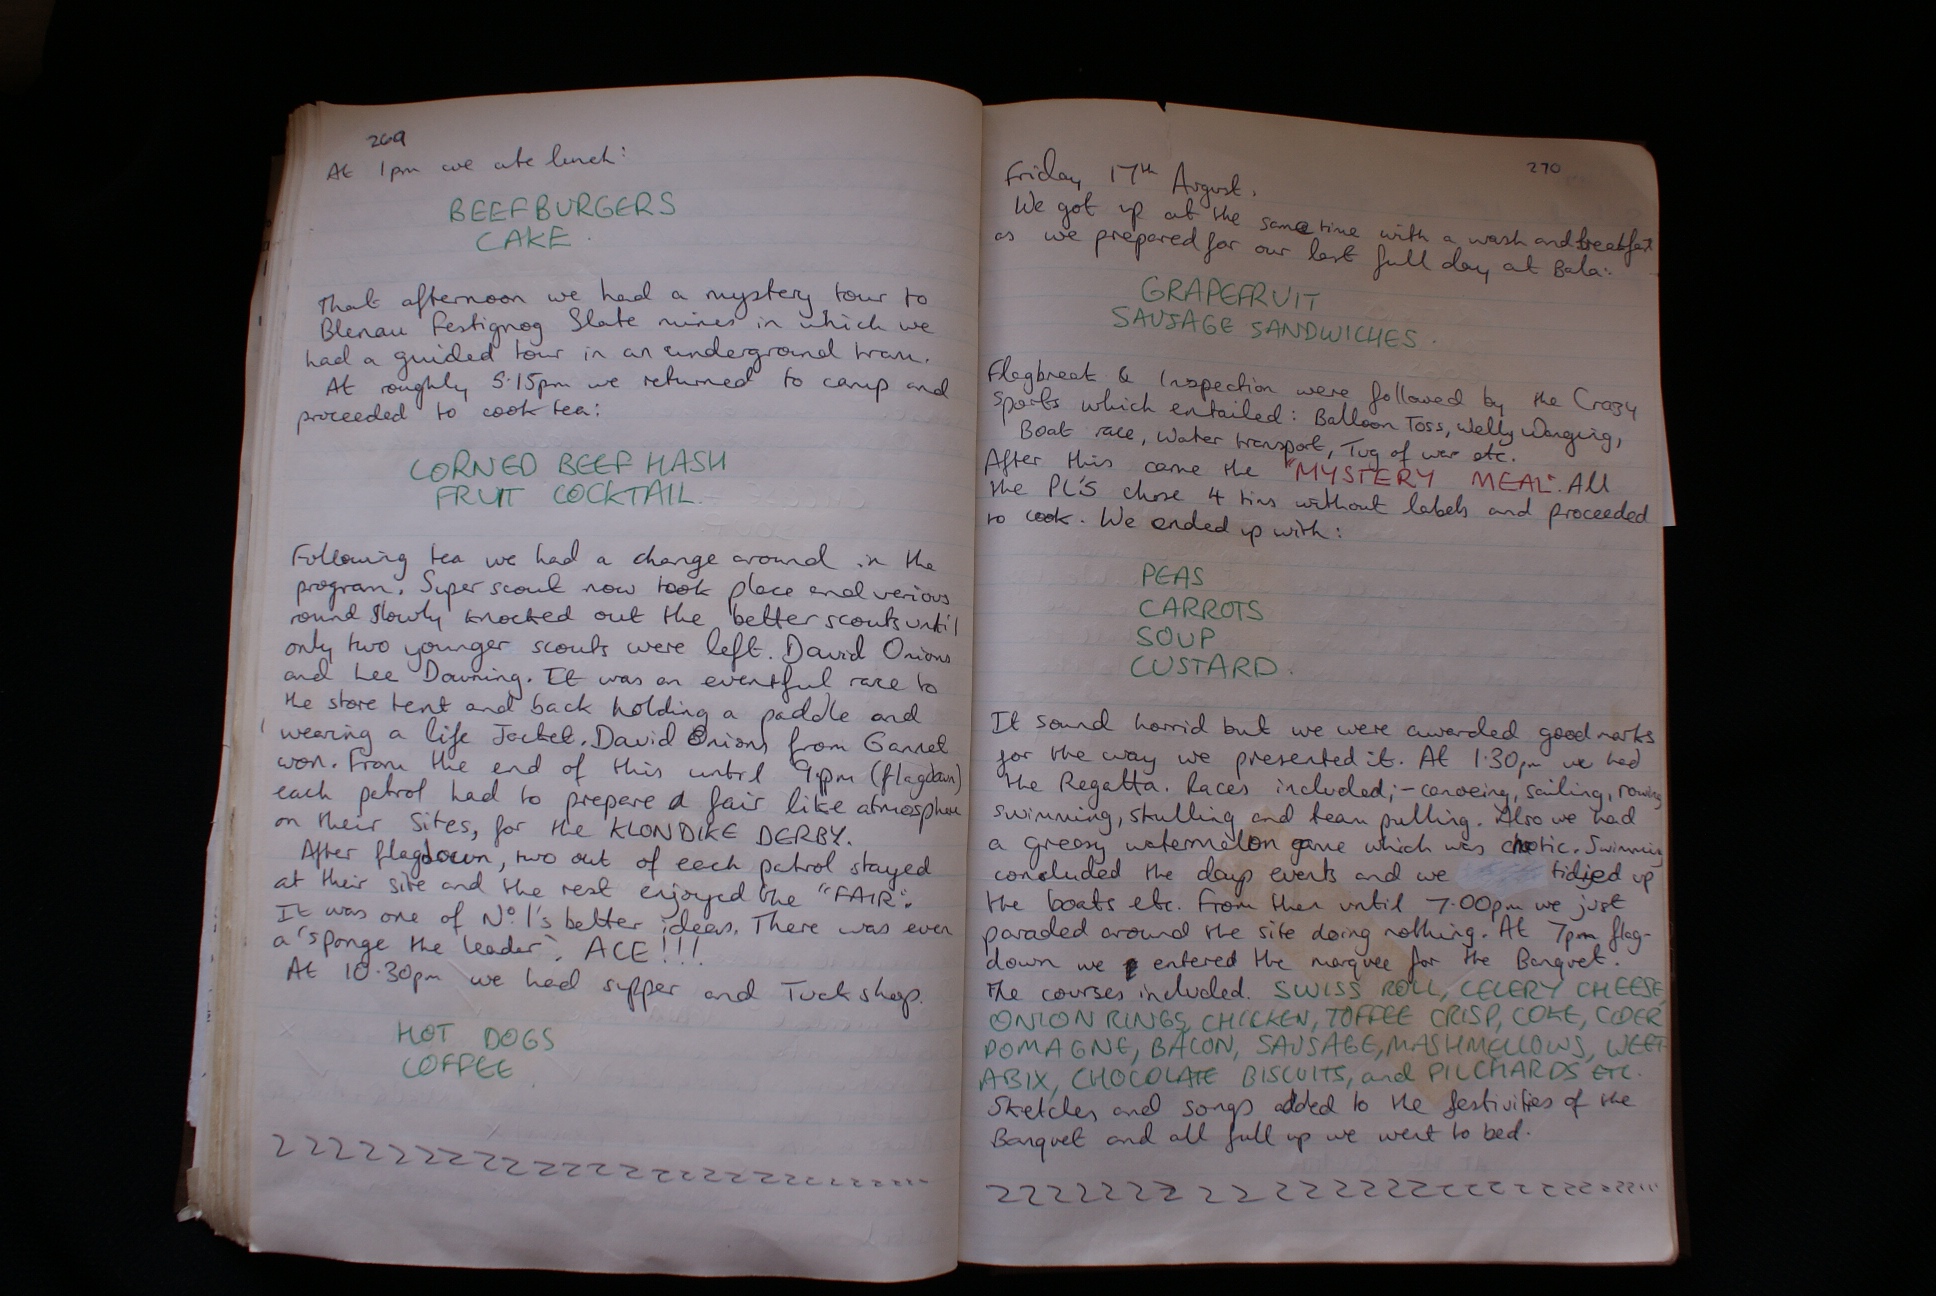 269
At 1pm we ate lunch:
BEEFBURGERS
CAKE.
That afternoon we had a mystery tour to
Blenau Festignog Slate mines in which we
had a guided tour in an underground tram.
At roughly 5.15pm we returned to camp and
proceeded to cook tea:
CORNED BEEF HASH
FRUIT COCKTAIL.
Following tea we had a change around in the
program. Super scout now took place and verious
round slowly knocked out the better scouts until
only two younger scouts were left. David Onions
and Lee Downing. It was an eventful race to
the store tent and back holding a paddle and
wearing a life Jacket. David Onions from Gannet
won. From the end of this until 9pm (flagdown)
each patrol had to prepare a fair like atmosphere
on their sites, for the KLONDIKE DERBY.
After flagdown, two out of each patrol stayed
at their site and the rest enjoyed the "FAIR".
It was one of No 1's better ideas. There was even
a 'sponge the leader'. ACE!!!
At 10.30pm we had supper and Tuck shop.
HOT DOGS
COFFEE.
ZZZZZZZZZZZZZZZZZZZZZZZZ
270
Friday 17th August.
We got up at the same time with a wash and breakfast
as we prepared for our last full day at Bala:
GRAPEFRUIT
SAUSAGE SANDWICHES.
Flagbreak & Inspection were followed by the Crazy
sports which entailed: Balloon Toss, Welly Wanging,
Boat race, Water transport, Tug of war etc.
After this came the "MYSTERY MEAL". All
the PL'S chose 4 tins without labels and proceeded
to cook. We ended up with:
PEAS
CARROTS
SOUP
CUSTARD.
It sound horrid but we were awarded good marks
for the way we presented it. At 1.30pm we had
the Regatta. Races included;- canoeing, sailing, rowing
swimming, skulling and team pulling. Also we had
a greasy watermelon game which was chaotic. Swimming
concluded the days events and we tidied up
the boats etc. From then until 7.00pm we just
paraded around the site doing nothing. At 7pm flag-
down we entered the marquee for the Banquet.
The courses included. SWISS ROLL, CELERY CHEESE,
ONION RINGS, CHICKEN, TOFFEE CRISP, COKE, CIDER
POMAGNE, BACON, SAUSAGE, MASHMELLOWS, WEET-
ABIX, CHOCOLATE BISCUITS, and PILCHARDS ETC.
Sketches and songs added to the festivities of the
Banquet and all full up we went to bed.
ZZZZZZZZZZZZZZZZZZZZZZZZ